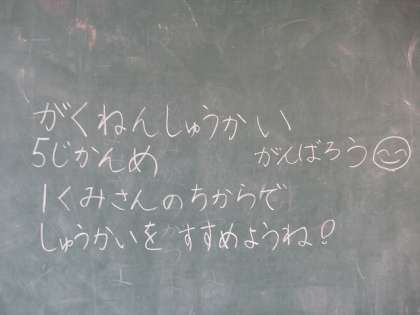 がくねんしゅうかい
5じかんめ がんばろう
1くみさんのちからで
しゅうかいを すすめようね!